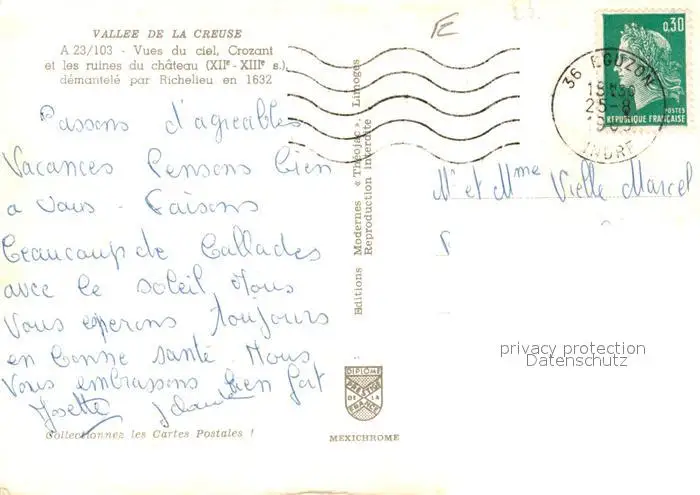 VALLEE DE LA CREUSE
A 23/103 - Vues du ciel, Crozant
et les ruines du château (XIIe - XIIIe s.),
démantelé par Richelieu en 1632
Passons d'agreables
Vacances Pensons bien
a Vous - Faisons
Beaucoup de Ballades
avec le soleil Nous
Vous esperons toujours
en bonne santé. Nous
Vous embrassons bien fort
Josette
Collectionnez les Cartes Postales !
Editions Modernes « Théojac », Limoges
Reproduction interdite
DIPLOME
PRESTIGE
DE LA
FRANCE
MEXICHROME
0,30
POSTES
REPUBLIQUE FRANÇAISE
36 EGUZON
25-8
INDRE
Mr et Mme Vielle Marcel
privacy protection
Datenschutz